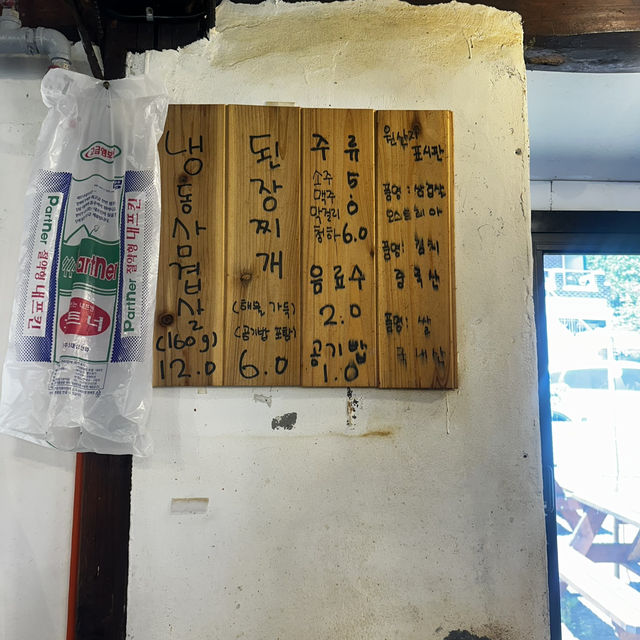 고급엠보
Partner
절약형 내프킨
Partner
냅킨
절약형 내프킨
Partner
냉동삼겹살
(160g)
12.0
된장찌개
(해물 가득)
(공기밥 포함)
6.0
주류
소주
맥주
막걸리
5.0
청하-6.0
음료수
2.0
공기밥
1.0
원산지
표시판
품명: 삼겹살
오스트리아
품명: 김치
중국산
품명: 쌀
국내산